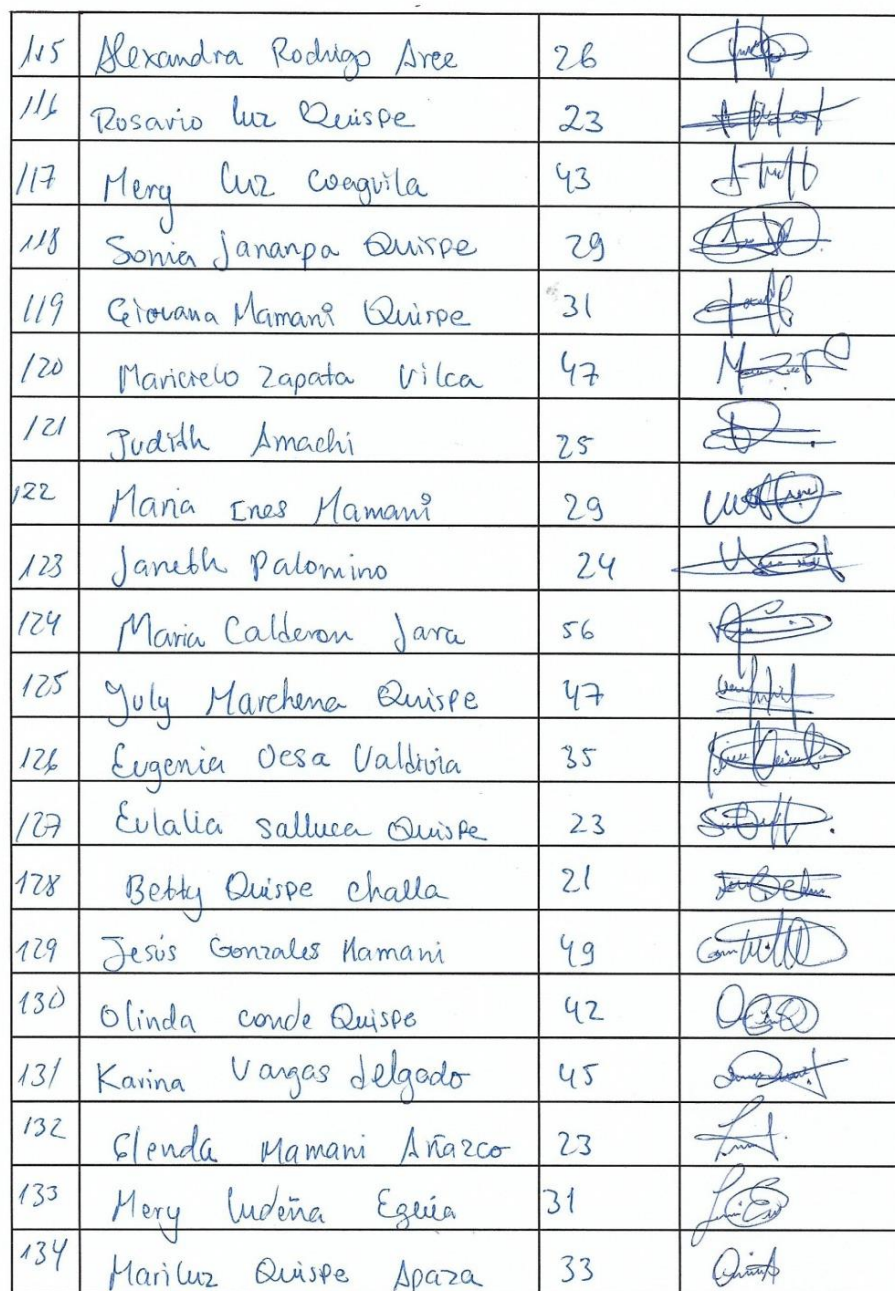 115 Alexandra Rodrigo Arce 26
116 Rosario luz Quispe 23
117 Mery Luz Coaguila 43
118 Sonia Jananpa Quispe 29
119 Giovana Mamani Quispe 31
120 Maricielo Zapata Vilca 47
121 Judith Amachi 25
122 Maria Ines Mamani 29
123 Janeth Palomino 24
124 Maria Calderon Jara 56
125 Yuly Marchena Quispe 47
126 Eugenia Oesa Valdivia 35
127 Eulalia Salluca Quispe 23
128 Betty Quispe challa 21
129 Jesús Gonzales Mamani 49
130 Olinda conde Quispe 42
131 Karina Vargas delgado 45
132 Glenda Mamani Añazco 23
133 Mery ludeña 31
134 Mariluz Quispe Apaza 33